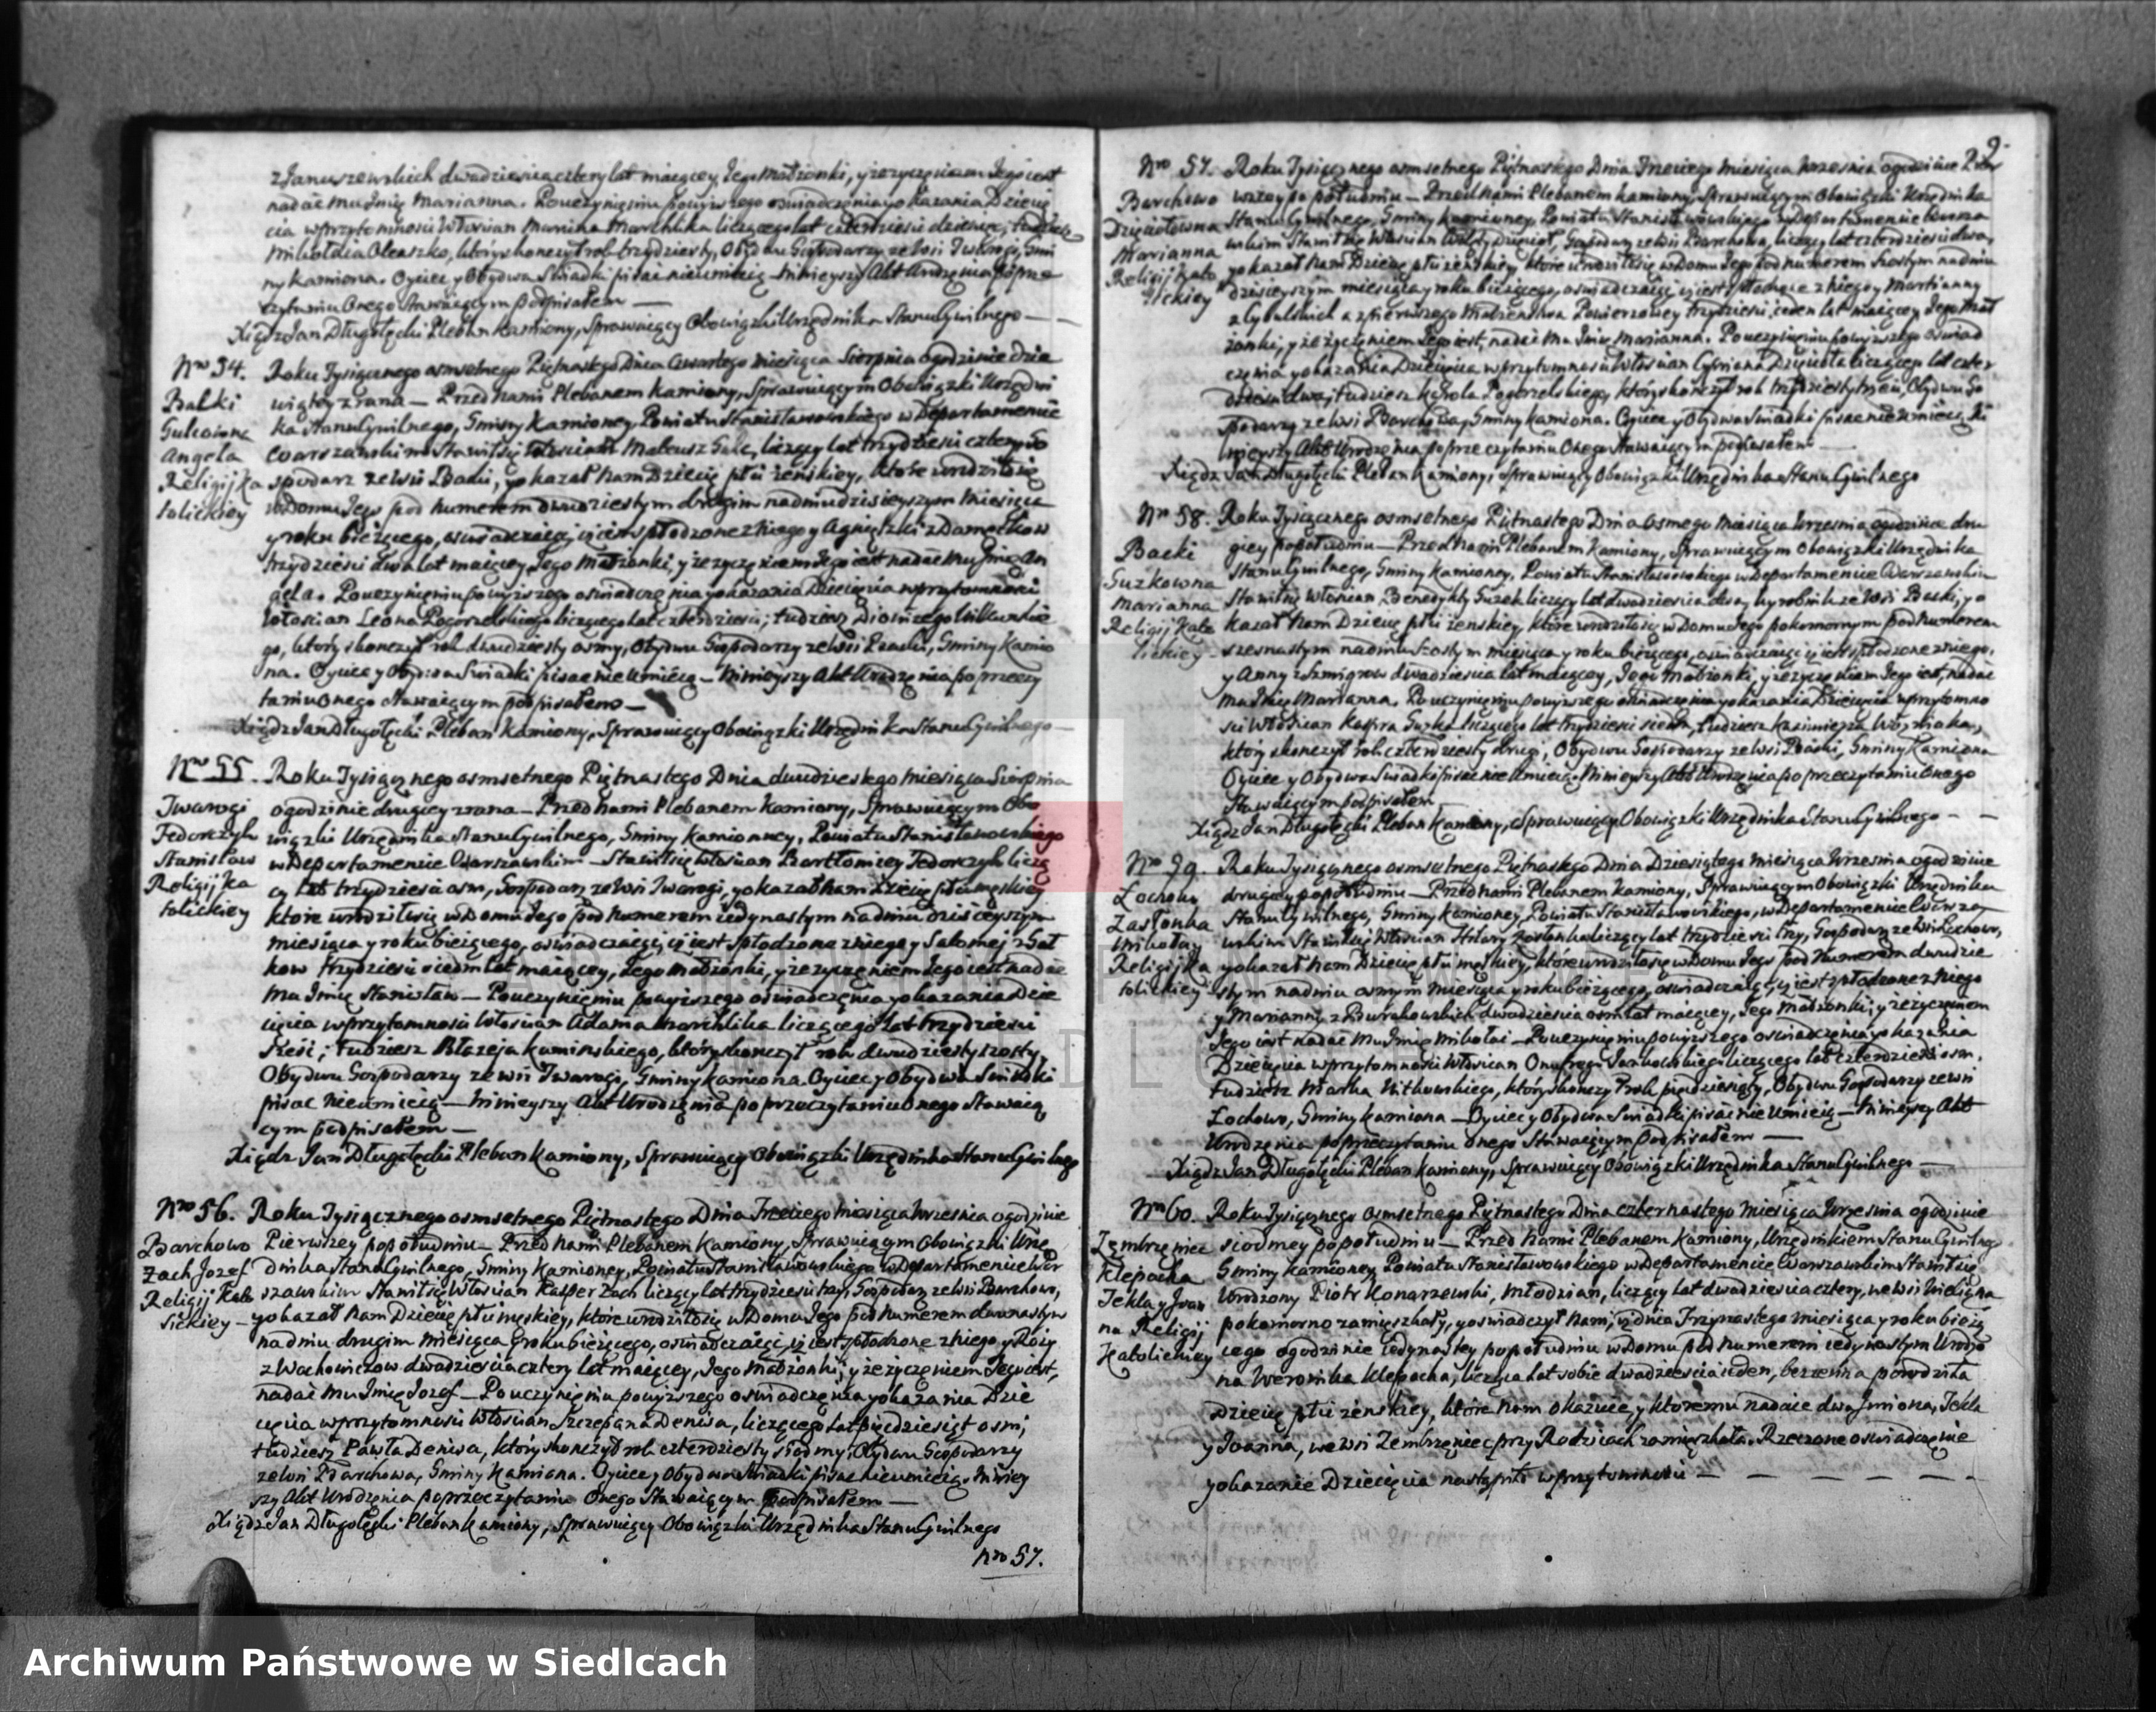 z Januszewskich dwadziescia cztery lat maiącey, Jego Małżonki, y ze zyczeniem Jego iest
nadać mu Imię Marianna. Po uczynieniu powyższego oświadczenia y okazania Dziecię
cia w przytomności Włościan Marcina Marchlika liczącego lat czterdzieści dziewięć, tudzież
Mikołaia Oleaszko, który skonczył rok trzydziesty, Obydwu Gospodarzy ze Wsi Twarogi, Gmi
ny Kamiona. Oyciec y Obydwa Swiadki pisać nieumieią Ninieyszy Akt Urodzenia po prze
czytaniu Onego Stawaiącym podpisałem —
Xiądz Jan Długołęcki Pleban Kamiony, Sprawuiący Obowiązki Urzędnika Stanu Cywilnego —
Nro 54. Roku Tysiącznego osmsetnego Piętnastego Dnia Czwartego miesiąca Sierpnia o godzinie dzie
Balki
Gulcowna
Angela
Religij Ka
tolickiey
wiątey z rana — Przed Nami Plebanem Kamiony, Sprawuiącym Obowiązki Urzędni
ka Stanu Cywilnego, Gminy Kamioney Powiatu Stanisławowskiego w Departamencie
Warszawskim Stawił się Włościan Mateusz Gulc, liczący lat trzydzieści cztery Go
spodarz ze Wsi Balki, y okazał Nam Dziecię płci żenskiey, które urodziło się
w Domu Jego pod Numerem dwudziestym drugim na dniu dzisieyszym Miesiąca
y roku bieżącego, oswiadczaiąc, iż iest spłodzone z Niego y Agnieszki z Domeckow
trzydzieści dwa lat maiącey, Jego Małżonki, y ze zyczeniem Jego iest nadać Mu Imię An
gela. Po uczynieniu powyższego oświadczenia y okazania Dziecięcia w przytomności
Włościan Leona Pogorzelskiego liczącego lat czterdzieści; tudzież Dionizego Witkowskie
go, który skonczył rok dwudziesty osmy, Obydwu Gospodarzy ze Wsi Balki, Gminy Kamio
na. Oyciec y Obydwa Swiadki pisać nie umieią — Ninieyszy Akt Urodzenia po przeczy
taniu Onego Stawaiącym podpisałem —
Xiądz Jan Długołęcki Pleban Kamiony, Sprawuiący Obowiązki Urzędnika Stanu Cywilnego —
Nro 55. Roku Tysiącznego osmsetnego Piętnastego Dnia dwudziestego miesiąca Sierpnia
Twarogi
Fedorczyk
Stanisław
Religij Ka
tolickiey
o godzinie drugiey z rana — Przed Nami Plebanem Kamiony, Sprawuiącym Obo
wiązki Urzędnika Stanu Cywilnego, Gminy Kamionney, Powiatu Stanisławowskiego
w Departamencie Warszawskim — Stawił się Włościan Bartłomiey Fedorczyk liczą
cy lat trzydzieści osm, Gospodarz ze Wsi Twarogi, y okazał Nam Dziecię płci męskiey
które urodziło się w Domu Jego pod Numerem iedynastym na dniu dzisieyszym
miesiąca y roku bieżącego, oświadczaiąc, iż iest Spłodzone z Niego y Salomei z Gał
kow trzydzieści siedm lat maiącey, Jego Małżonki, y ze zyczeniem Jego iest nadać
Mu Imię Stanisław — Po uczynieniu powyższego oświadczenia y okazania Dzie
cięcia w przytomności Włościan Adama Marchlika liczącego lat trzydzieści
sześć; tudzież Błażeja Kaminskiego, który skonczył rok dwudziesty szosty,
Obydwu Gospodarzy ze Wsi Twarogi, Gminy Kamiona Oyciec y Obydwa Swiadki
pisać nieumieią — Ninieyszy Akt Urodzenia po przeczytaniu Onego Stawaią
cym podpisałem —
Xiądz Jan Długołęcki Pleban Kamiony, Sprawuiący Obowiązki Urzędnika Stanu Cywilnego
Nro 56. Roku Tysiącznego osmsetnego Piętnastego Dnia Trzeciego miesiąca Wrzesnia o godzinie
Barchowo
Zach Jozef
Religij Kato
lickiey —
Pierwszey po południu — Przed Nami Plebanem Kamiony, Sprawuiącym Obowiązki Urzę
dnika Stanu Cywilnego, Gminy Kamioney, Powiatu Stanisławowskiego w Departamencie War
szawskim Stawił się Włościan Kasper Zach liczący lat trzydzieści trzy, Gospodarz ze Wsi Barchowo,
y okazał Nam Dziecię płci męskiey, które urodziło się w Domu Jego pod Numerem dwunastym
na dniu drugim miesiąca y roku bieżącego, oświadczaiąc, iż iest spłodzone z Niego y Rózy
z Wachowiczow dwadziescia cztery lat maiącey, Jego Małżonki, y ze życzeniem Jego iest,
nadać Mu Imię Jozef — Po uczynieniu powyższego oświadczenia y okazania Dzie
cięcia w przytomności Włościan Szczepana Denisa, liczącego lat pięcdziesiąt osm;
tudzież Pawła Denisa, który skonczył rok czterdziesty siodmy, Obydwu Gospodarzy
ze Wsi Barchowa, Gminy Kamiona. Oyciec y Obydwa Swiadki pisać nieumieią. Niniey
szy Akt Urodzenia po przeczytaniu Onego Stawaiącym podpisałem —
Xiądz Jan Długołęcki Pleban Kamiony, Sprawuiący Obowiązki Urzędnika Stanu Cywilnego
Nro 57.
9.
Nro 57. Roku Tysiącznego osmsetnego Piętnastego Dnia Trzeciego miesiąca Wrzesnia o godzinie Pier
Barchowo
Dzięciołowna
Marianna
Religij Kato
lickiey
wszey po południu — Przed Nami Plebanem Kamiony, Sprawuiącym Obowiązki Urzędnika
Stanu Cywilnego, Gminy Kamioney, Powiatu Stanisławowskiego w Departamencie Warsza
wskim Stawił się Włościan Dzięcioł, Gospodarz ze Wsi Barchowa, liczący lat czterdzieści dwa,
y okazał Nam Dziecię płci żenskiey, które urodziło się w Domu Jego pod numerem Szostym na dniu
dzisieyszym miesiąca y roku bieżącego, oświadczaiąc, iż iest spłodzone z Niego y Marianny
z Cybulskich a z pierwszego Małżenstwa trzydzieści ieden lat maiącey Jego Mał
żonki, y ze życzeniem Jego iest, nadać Mu Imię Marianna. Po uczynieniu powyższego oświad
czenia y okazania Dziecięcia w przytomności Włościan Cypriana Dzięcioła liczącego lat czter
dzieści dwa; tudzież Karola Pogorzelskiego, który skonczył rok trzydziesty trzeci, Obydwu Go
spodarzy ze Wsi Barchowa, Gminy Kamiona. Oyciec y Obydwa Swiadki pisać nie umieią Ni
nieyszy Akt Urodzenia po przeczytaniu Onego Stawaiącym podpisałem —
Xiądz Jan Długołęcki Pleban Kamiony, Sprawuiący Obowiązki Urzędnika Stanu Cywilnego
Nro 58. Roku Tysiącznego osmsetnego Piętnastego Dnia Osmego Miesiąca Wrzesnia o godzinie dru
Baczki
Guzkowna
Marianna
Religij Kato
lickiey —
giey po południu — Przed Nami Plebanem Kamiony, Sprawuiącym Obowiązki Urzędnika
Stanu Cywilnego, Gminy Kamioney, Powiatu Stanisławowskiego w Departamencie Warszawskim
Stawił się Włościan Benedykt Guzek liczący lat dwadziescia dwa, Wyrobnik ze Wsi Baczki, y o
kazał Nam Dziecię płci żenskiey, które urodziło się w Domu Jego pokomornym pod Numerem
szesnastym na dniu szostym miesiąca y roku bieżącego, oświadczaiąc, iż iest spłodzone z niego,
y Anny z Szmigrow dwadziescia lat maiącey, Jego Małżonki, y ze życzeniem Jego iest, nadać
Mu Imię Marianna. Po uczynieniu powyższego oświadczenia y okazania Dziecięcia w przytomno
ści Włościan Kaspra Guzka liczącego lat trzydzieści siedm, tudzież Kazimierza Woźniaka,
który skonczył rok czterdziesty drugi, Obydwu Gospodarzy ze Wsi Baczki, Gminy Kamiona
Oyciec y Obydwa Swiadki pisać nie Umieią. Ninieyszy Akt Urodzenia po przeczytaniu Onego
Stawaiącym podpisałem
Xiądz Jan Długołęcki Pleban Kamiony, Sprawuiący Obowiązki Urzędnika Stanu Cywilnego —
Nro 59. Roku Tysiącznego osmsetnego Piętnastego Dnia Dziesiątego miesiąca Wrzesnia o godzinie
Łochowo
Zasłonka
Mikołay
Religij Ka
tolickiey
drugiey po południu — Przed Nami Plebanem Kamiony, Sprawuiącym Obowiązki Urzędnika
Stanu Cywilnego, Gminy Kamioney, Powiatu Stanisławowskiego, w Departamencie Warsza
wskim Stawił się Włościan Hilary Zasłonka liczący lat trzydzieści trzy, Gospodarz ze Wsi Łochowo,
y okazał Nam Dziecię płci męskiey, które urodziło się w Domu Jego pod Numerem dwudzie
stym na dniu osmym miesiąca y roku bieżącego, oświadczaiąc, iż iest spłodzone z Niego
y Marianny z Burakowskich dwadziescia osm lat maiącey, Jego Małżonki, y ze życzeniem
Jego iest nadać Mu Imię Mikołai — Po uczynieniu powyższego oświadczenia y okazania
Dziecięcia w przytomności Włościan Onufrego Jankowskiego liczącego lat czterdzieści osm,
tudzież Marka Witkowskiego, który skonczył rok pięcdziesiąty, Obydwu Gospodarzy ze Wsi
Łochowo, Gminy Kamiona — Oyciec y Obydwa Swiadki pisać nie Umieią — Ninieyszy Akt
Urodzenia po przeczytaniu Onego Stawaiącym podpisałem —
Xiądz Jan Długołęcki Pleban Kamiony, Sprawuiący Obowiązki Urzędnika Stanu Cywilnego —
Nro 60. Roku Tysiącznego osmsetnego Piętnastego Dnia czternastego Miesiąca Wrzesnia o godzinie
Zembrzeniec
Klepacka
Tekla y Joan
na Religij
Katolickiey
siodmey po południu — Przed Nami Plebanem Kamiony, Urzędnikiem Stanu Cywilnego
Gminy Kamioney, Powiatu Stanisławowskiego w Departamencie Warszawskim Stawił się
Urodzony Piotr Konarzewski, Młodzian, liczący lat dwadziescia cztery, we Wsi
pokomorno zamieszkały, y oświadczył Nam, iż dnia Trzynastego miesiąca y roku bieżą
cego o godzinie iedynastey po południu w Domu pod Numerem iedynastym Urodzo
na Weronika Klepacka, licząca lat sobie dwadziescia ieden, bezenna porodziła
Dziecię płci żenskiey, które Nam okazuie, y któremu nadaie dwa Imiona, Tekla
y Joanna, we Wsi Zembrzeniec przy Rodzicach zamieszkała. Rzeczone oświadczenie
y okazanie Dziecięcia nastąpiło w przytomności — — — — —
Archiwum Państwowe w Siedlcach